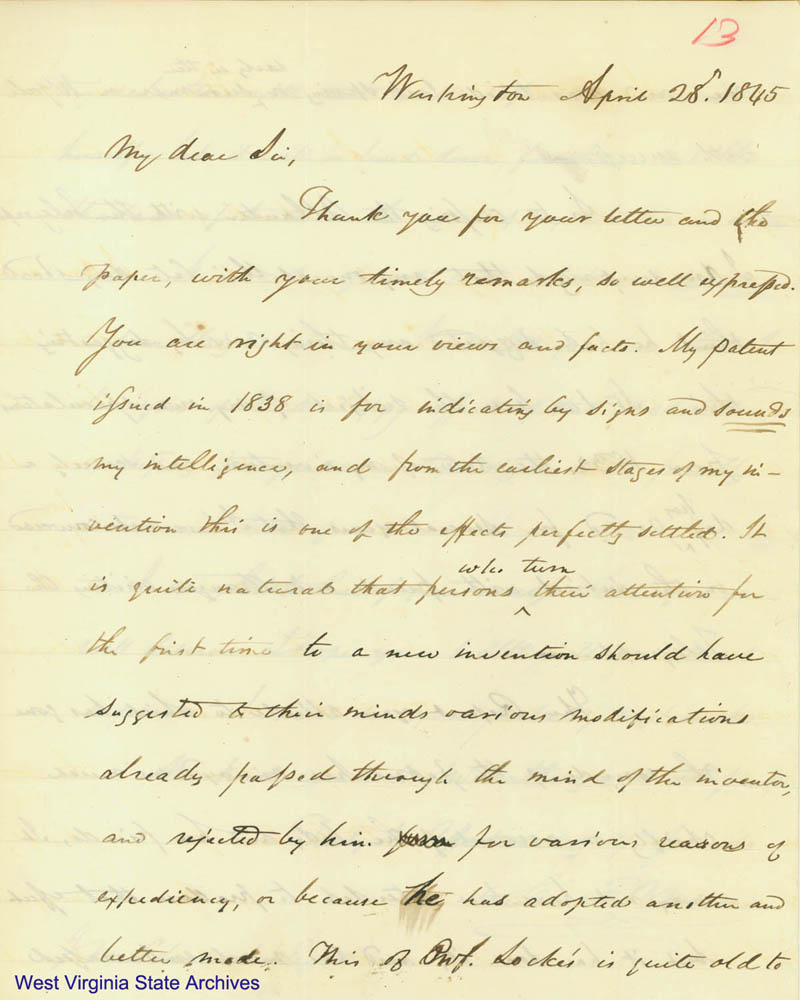 13
Washington April 28th. 1845
My dear Sir,
Thank you for your letter and the
paper, with your timely remarks, so well expressed.
You are right in your views and facts. My patent
issued in 1838 is for indicating by signs and sounds
my intelligence, and from the earliest stages of my in-
vention this is one of the effects perfectly settled. It
who turn
is quite natural that persons ^ their attention for
the first time to a new invention should have
suggested to their minds various modifications
already passed through the mind of the inventor,
and rejected by him for various reasons of
expediency, or because he has adopted another and
better mode. This of Prof. Locke's is quite old to
West Virginia State Archives